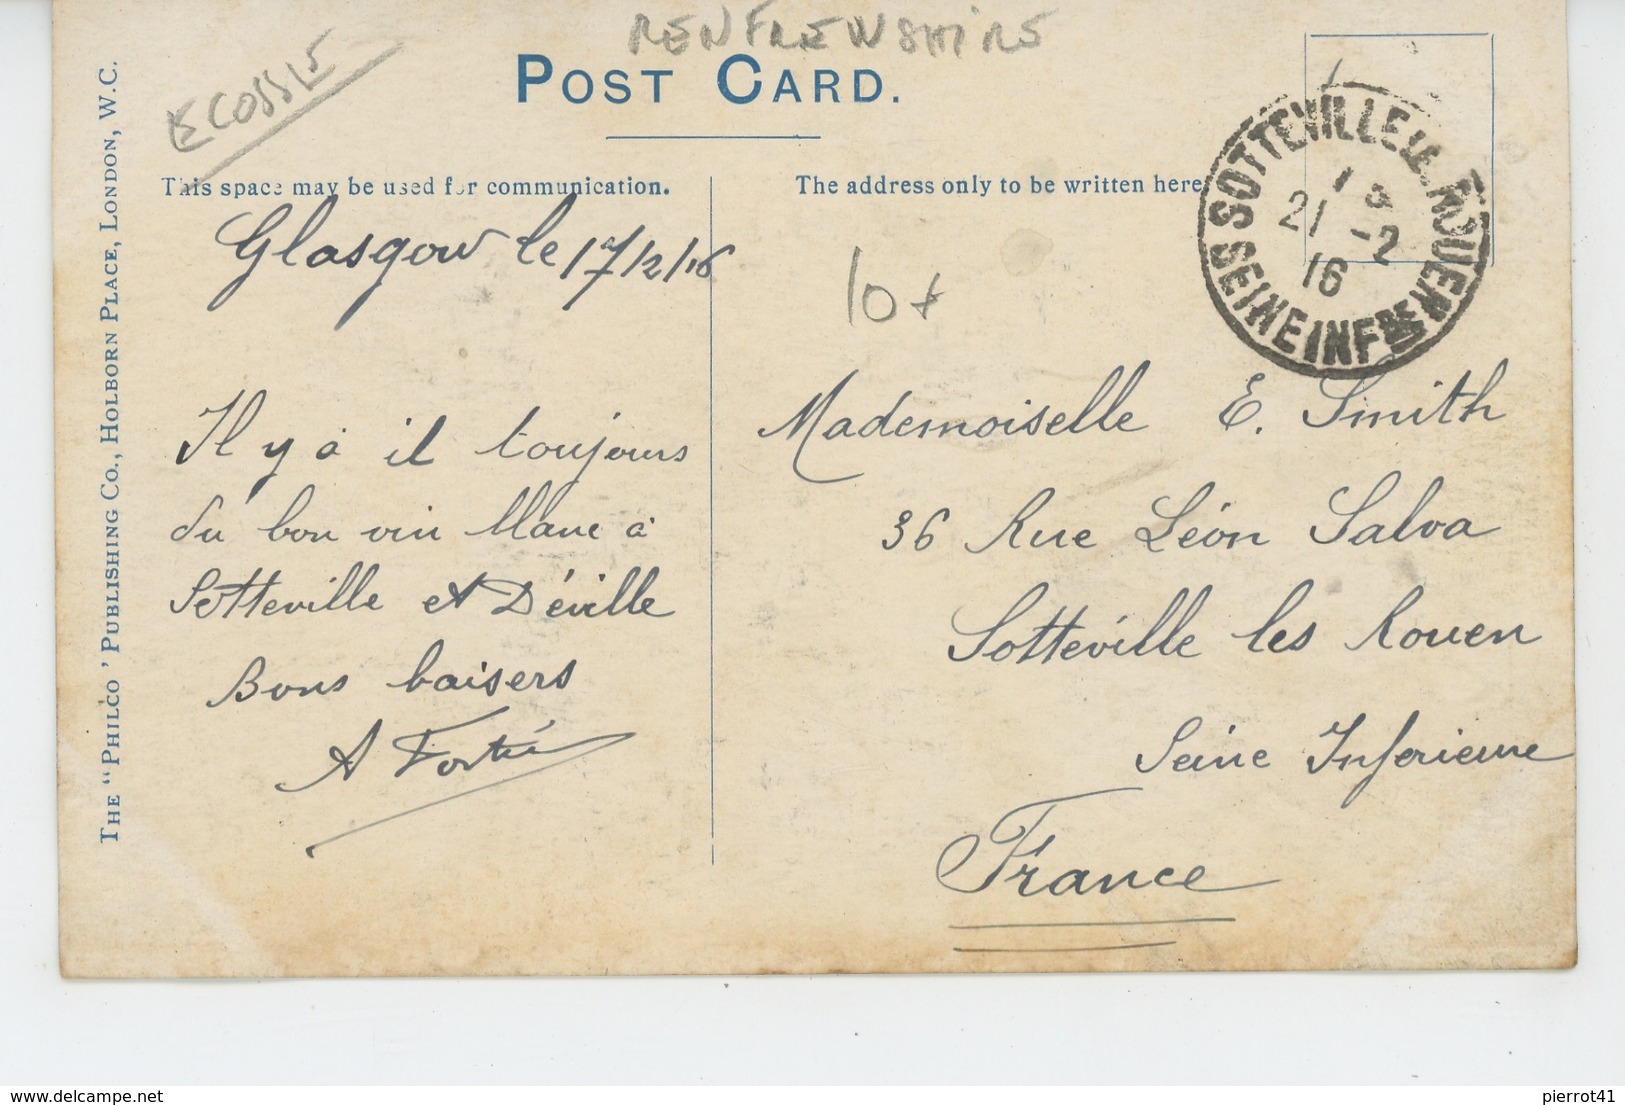 RENFREWSHIRE
ECOSSE
POST CARD.
THE "PHILCO" PUBLISHING CO., HOLBORN PLACE, LONDON, W.C.
This space may be used for communication.
Glasgow le 17/2/16
Il y à il toujours
du bon vin blanc à
Sotteville et Déville
Bons baisers
A Fortié
The address only to be written here
SOTTEVILLE LES ROUEN
21 -2
16
SEINE INFRE
10+
Mademoiselle E. Smith
36 Rue Léon Salva
Sotteville les Rouen
Seine Inferieure
France
delcampe.net
pierrot41